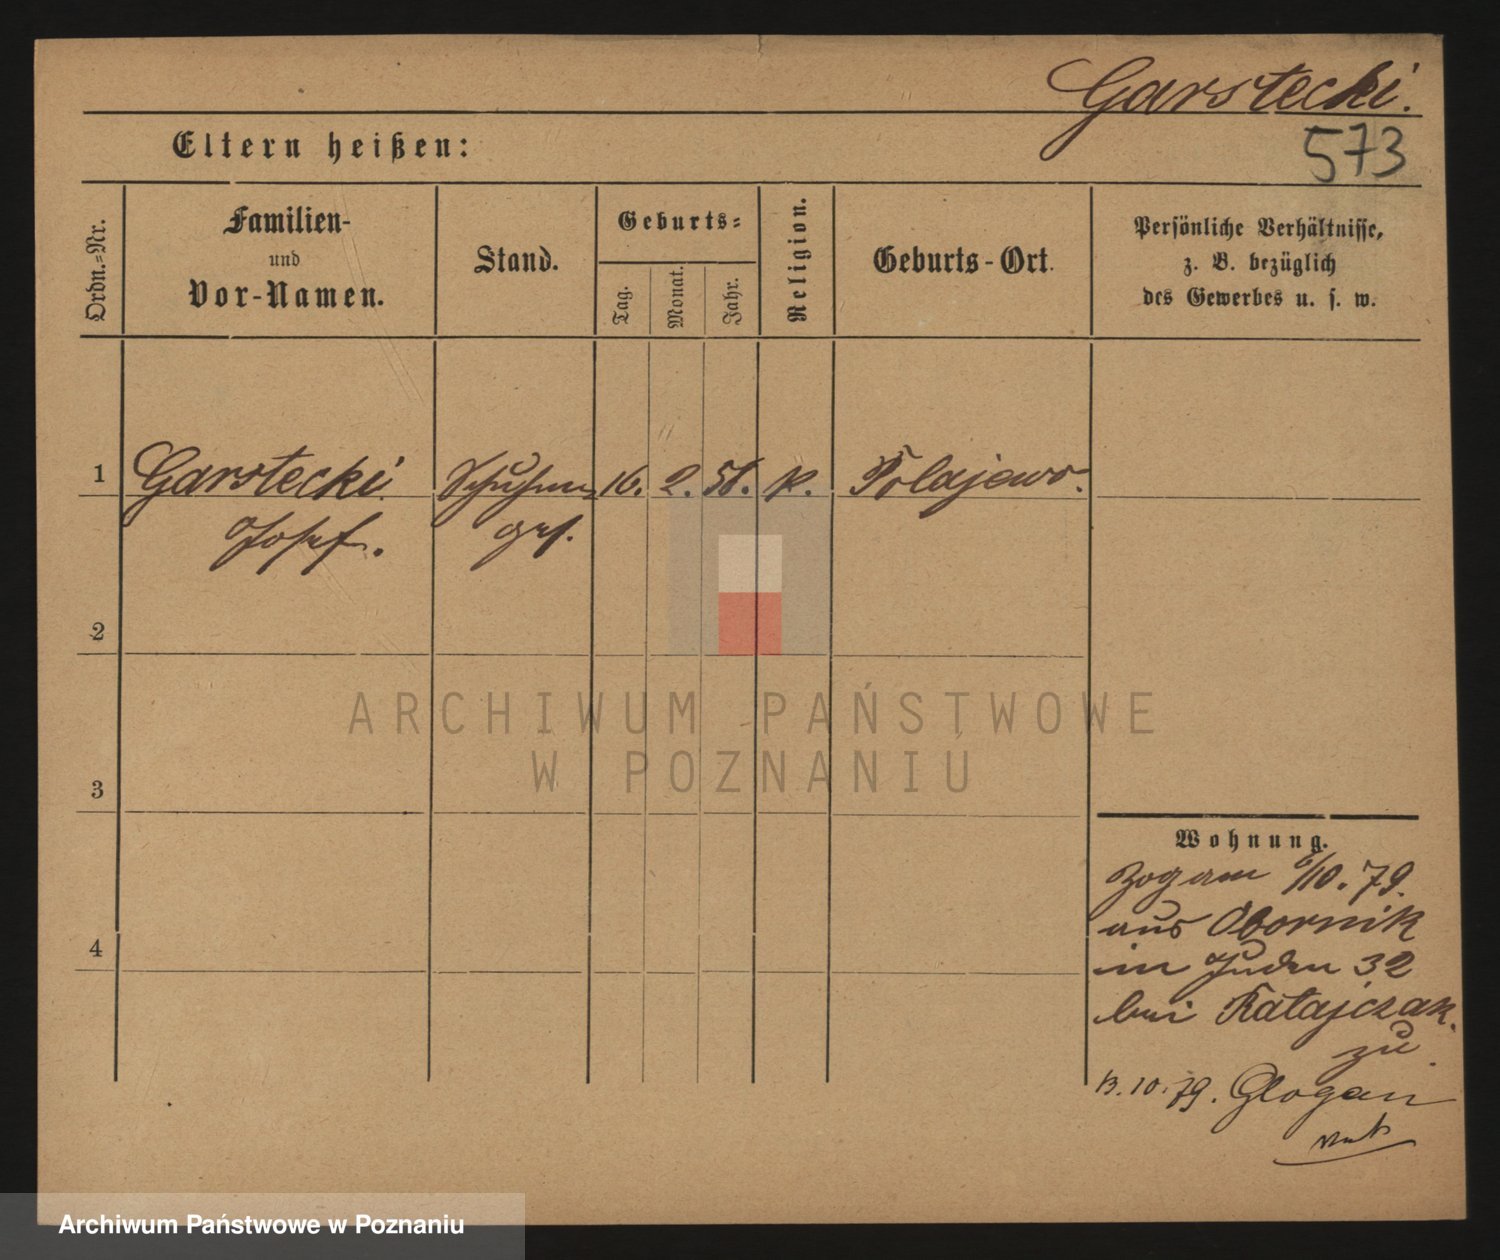 Garstecki.
573
Eltern heißen:
Ordn.=Nr.
Familien-
und
Vor-Namen.
Stand.
Geburts=
Tag.
Monat.
Jahr.
Religion.
Geburts-Ort.
Persönliche Verhältnisse,
z. B. bezüglich
des Gewerbes u. s. w.
1 Garstecki Schuhm= 16. 2. 58. k. Polajewo.
Josef. ges.
2
3
4
ARCHIWUM PAŃSTWOWE
W POZNANIU
Wohnung.
Zog am 6/10. 79.
aus Obornik
in Juden 32
bei Ratajczak.
zu.
13. 10. 79. Glogau
Archiwum Państwowe w Poznaniu